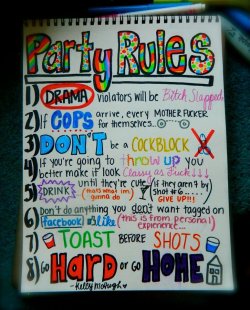 Party Rules
1) DRAMA violators will be Bitch Slapped
2) If COPS arrive, every MOTHER FUCKER
for themselves..
3) DON'T be a COCKBLOCK
4) If you're going to throw up you
better make it look Classy as Fuck
5) DRINK until they're cute (If they aren't by
(that's what im gonna do) shot #6..... GIVE UP!!!
Don't do anything you don't want tagged on
6) Facebook (this is from personal
experience...
7) TOAST BEFORE SHOTS
8) Go HARD or Go HOME
-Kelley